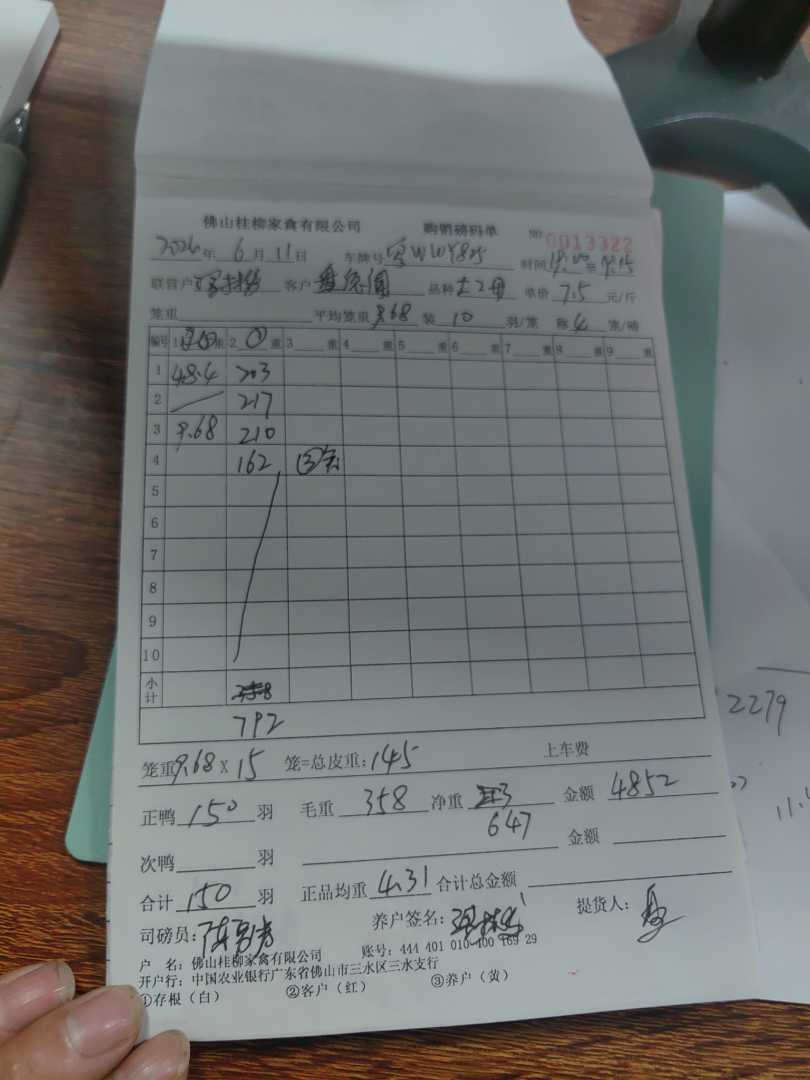 佛山桂柳家禽有限公司 购销磅码单 № 0013322
2026年 6月 11日 车牌号 WWY825 时间 至
联营户 客户 品种 单价 7.5 元/斤
笼重 平均笼重 9.68 装 10 羽/笼 称 4 笼/磅
编号 1 重 2 ① 重 3 重 4 重 5 重 6 重 7 重 8 重 9 重
1 48.4 203
2 217
3 9.68 210
4 162 ③
5
6
7
8
9
10
小计
792
笼重 9.68 X 15 笼=总皮重: 145 上车费
正鸭 150 羽 毛重 358 净重 金额 4852
647
次鸭 羽 金额
合计 150 羽 正品均重 4.31 合计总金额
司磅员: 养户签名: 提货人:
户 名: 佛山桂柳家禽有限公司 账号: 444 401 010 400 169 29
开户行: 中国农业银行广东省佛山市三水区三水支行
①存根(白) ②客户(红) ③养户(黄)
2279